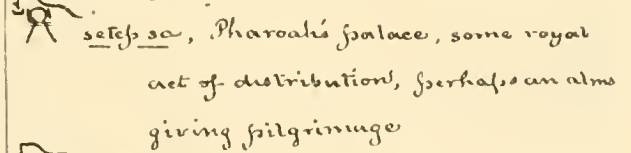 setep sa, Pharoah's palace, some royal
act of distribution, perhaps an alms
giving pilgrimage